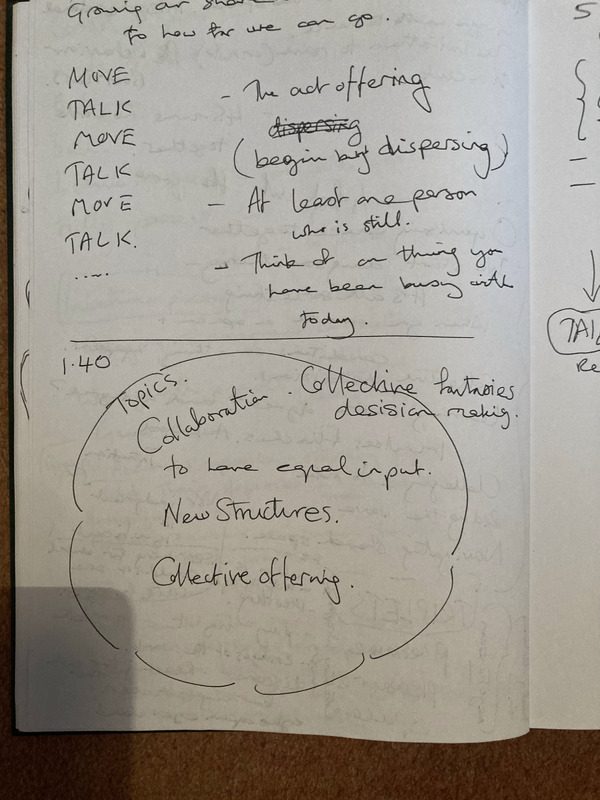 Growing or
to how far we can go.
MOVE
TALK
MOVE
TALK
MOVE
TALK.
.....
- The act offering
dispersing
(begin by dispersing)
- At least one person
who is still.
- Think of on thing you
have been busy with
today.
1.40
Topics.
Collaboration. Collective fantasies
desision making.
to have equal input.
New Structures.
Collective offering.
5
TAL
Re